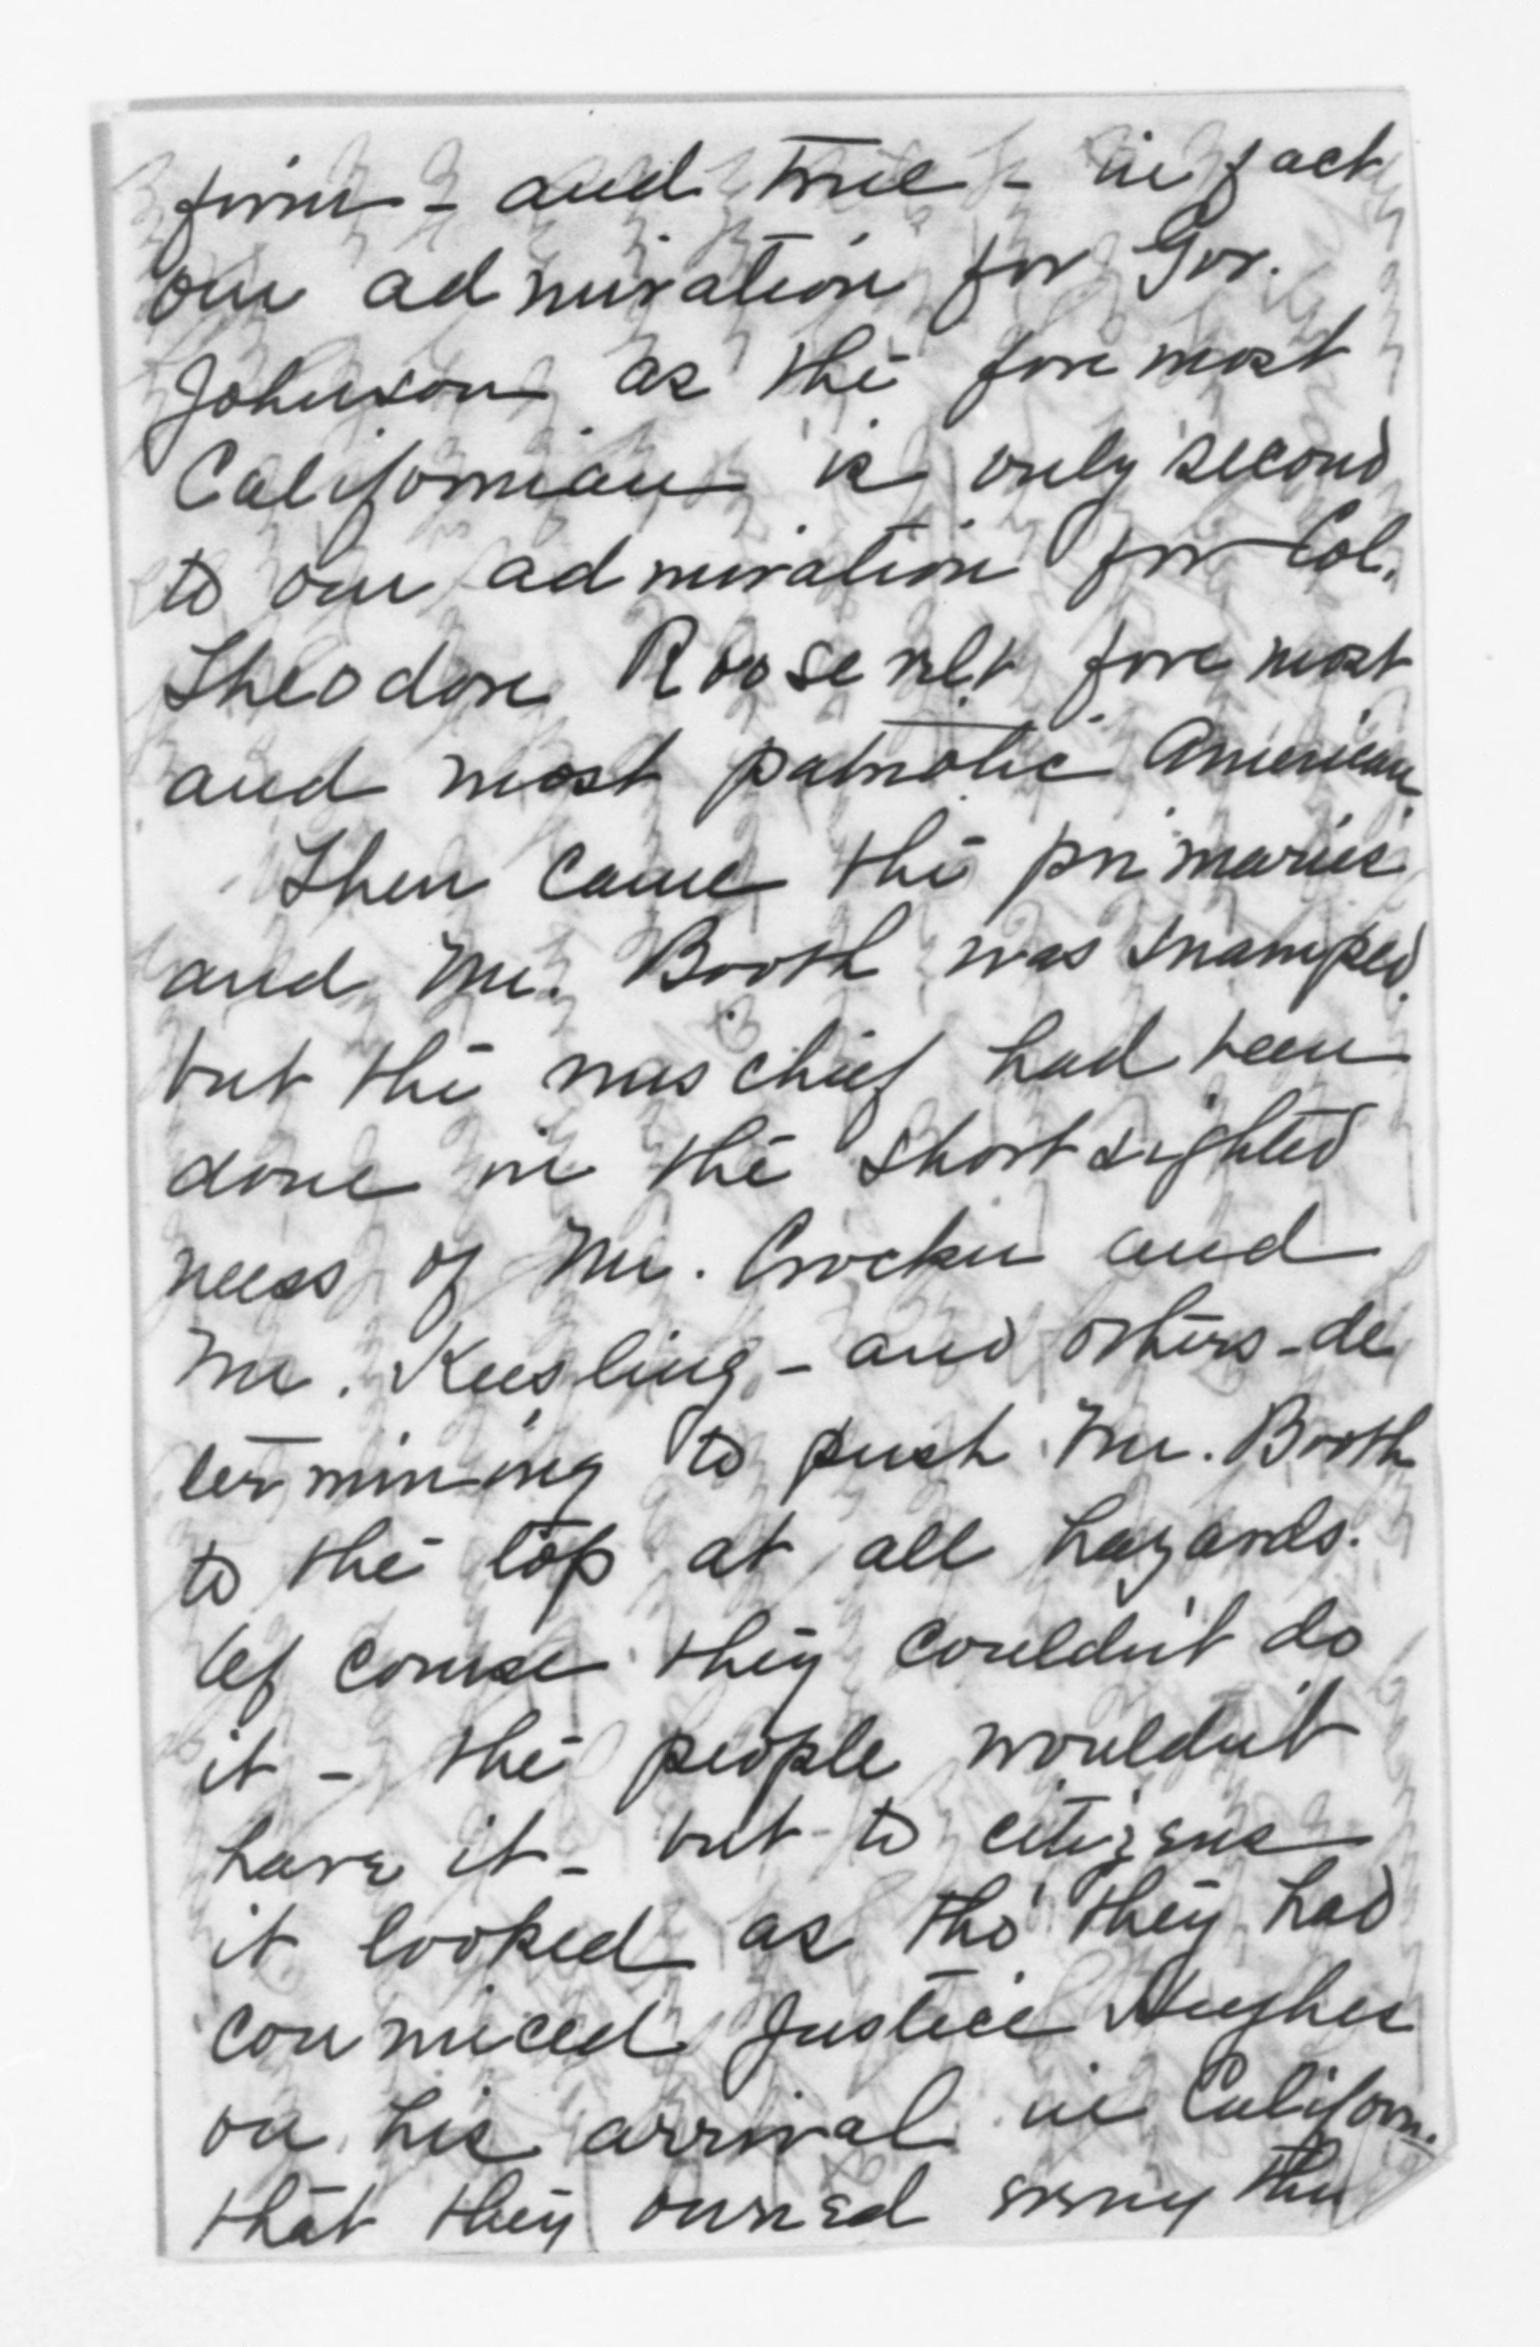 firm - and true - in fact
our admiration for Gov.
Johnson as the foremost
Californian is only second
to our admiration for Col.
Theodore Roosevelt foremost
and most patriotic American.
Then came the primaries
and Mr. Booth was swamped.
but the mischief had been
done in the shortsighted
ness of Mr. Crocker and
Mr. Keesling - and others - de
termining to push Mr. Booth
to the top at all hazards.
Of course they couldn't do
it - the people wouldn't
have it - but to citizens
it looked as tho' they had
convinced Justice Hughes
on his arrival in Californ.
that they owned every thin